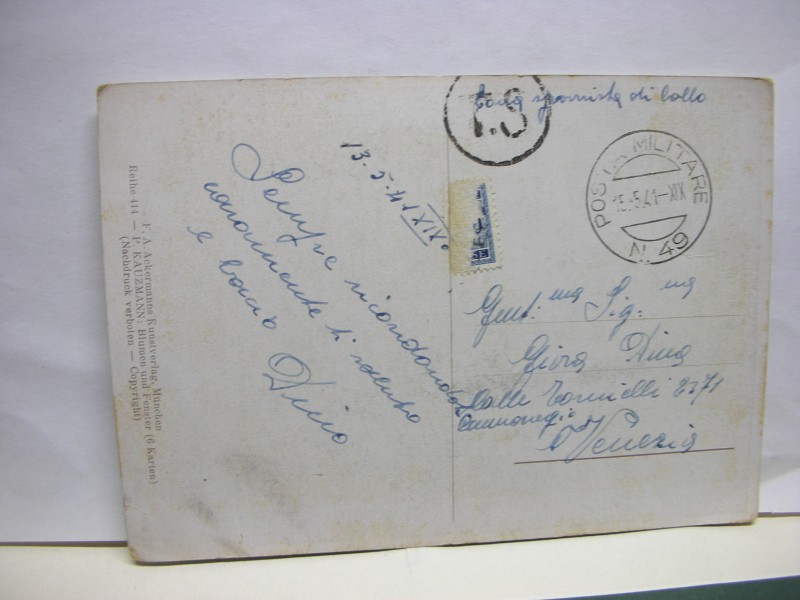 T.S
di bollo
POSTA MILITARE
15.5.41.XIX
N. 49
13-5-41 XIX°
Sempre ricordandoti
caramente ti saluto
e bacio Dino
Gent.ma Sig.na
Dina
Calle 2371
Cannaregio
Venezia
F. A. Ackermanns Kunstverlag, München
Reihe 414 — P. KAUZMANN: Blumen und Fenster (6 Karten)
(Nachdruck verboten — Copyright)